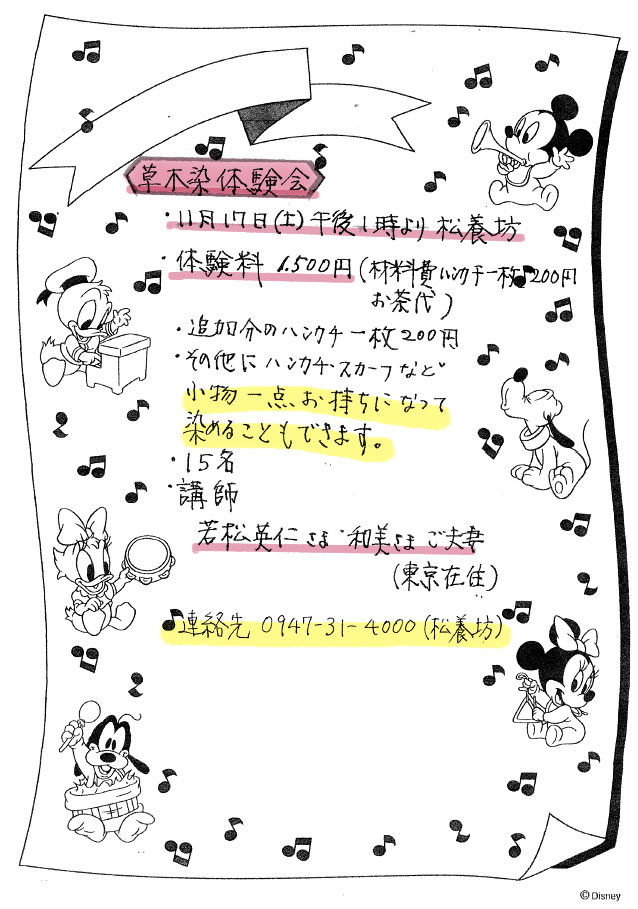 草木染体験会
・11月17日(土)午後1時より 松養坊
・体験料 1.500円(材料費ハンカチ一枚200円
お茶代)
・追加分のハンカチ一枚200円
・その他にハンカチ・スカーフなど
小物一点お持ちになって
染めることもできます。
・15名
・講師
若松英仁さま・和美さま ご夫妻
(東京在住)
連絡先 0947-31-4000(松養坊)
©Disney